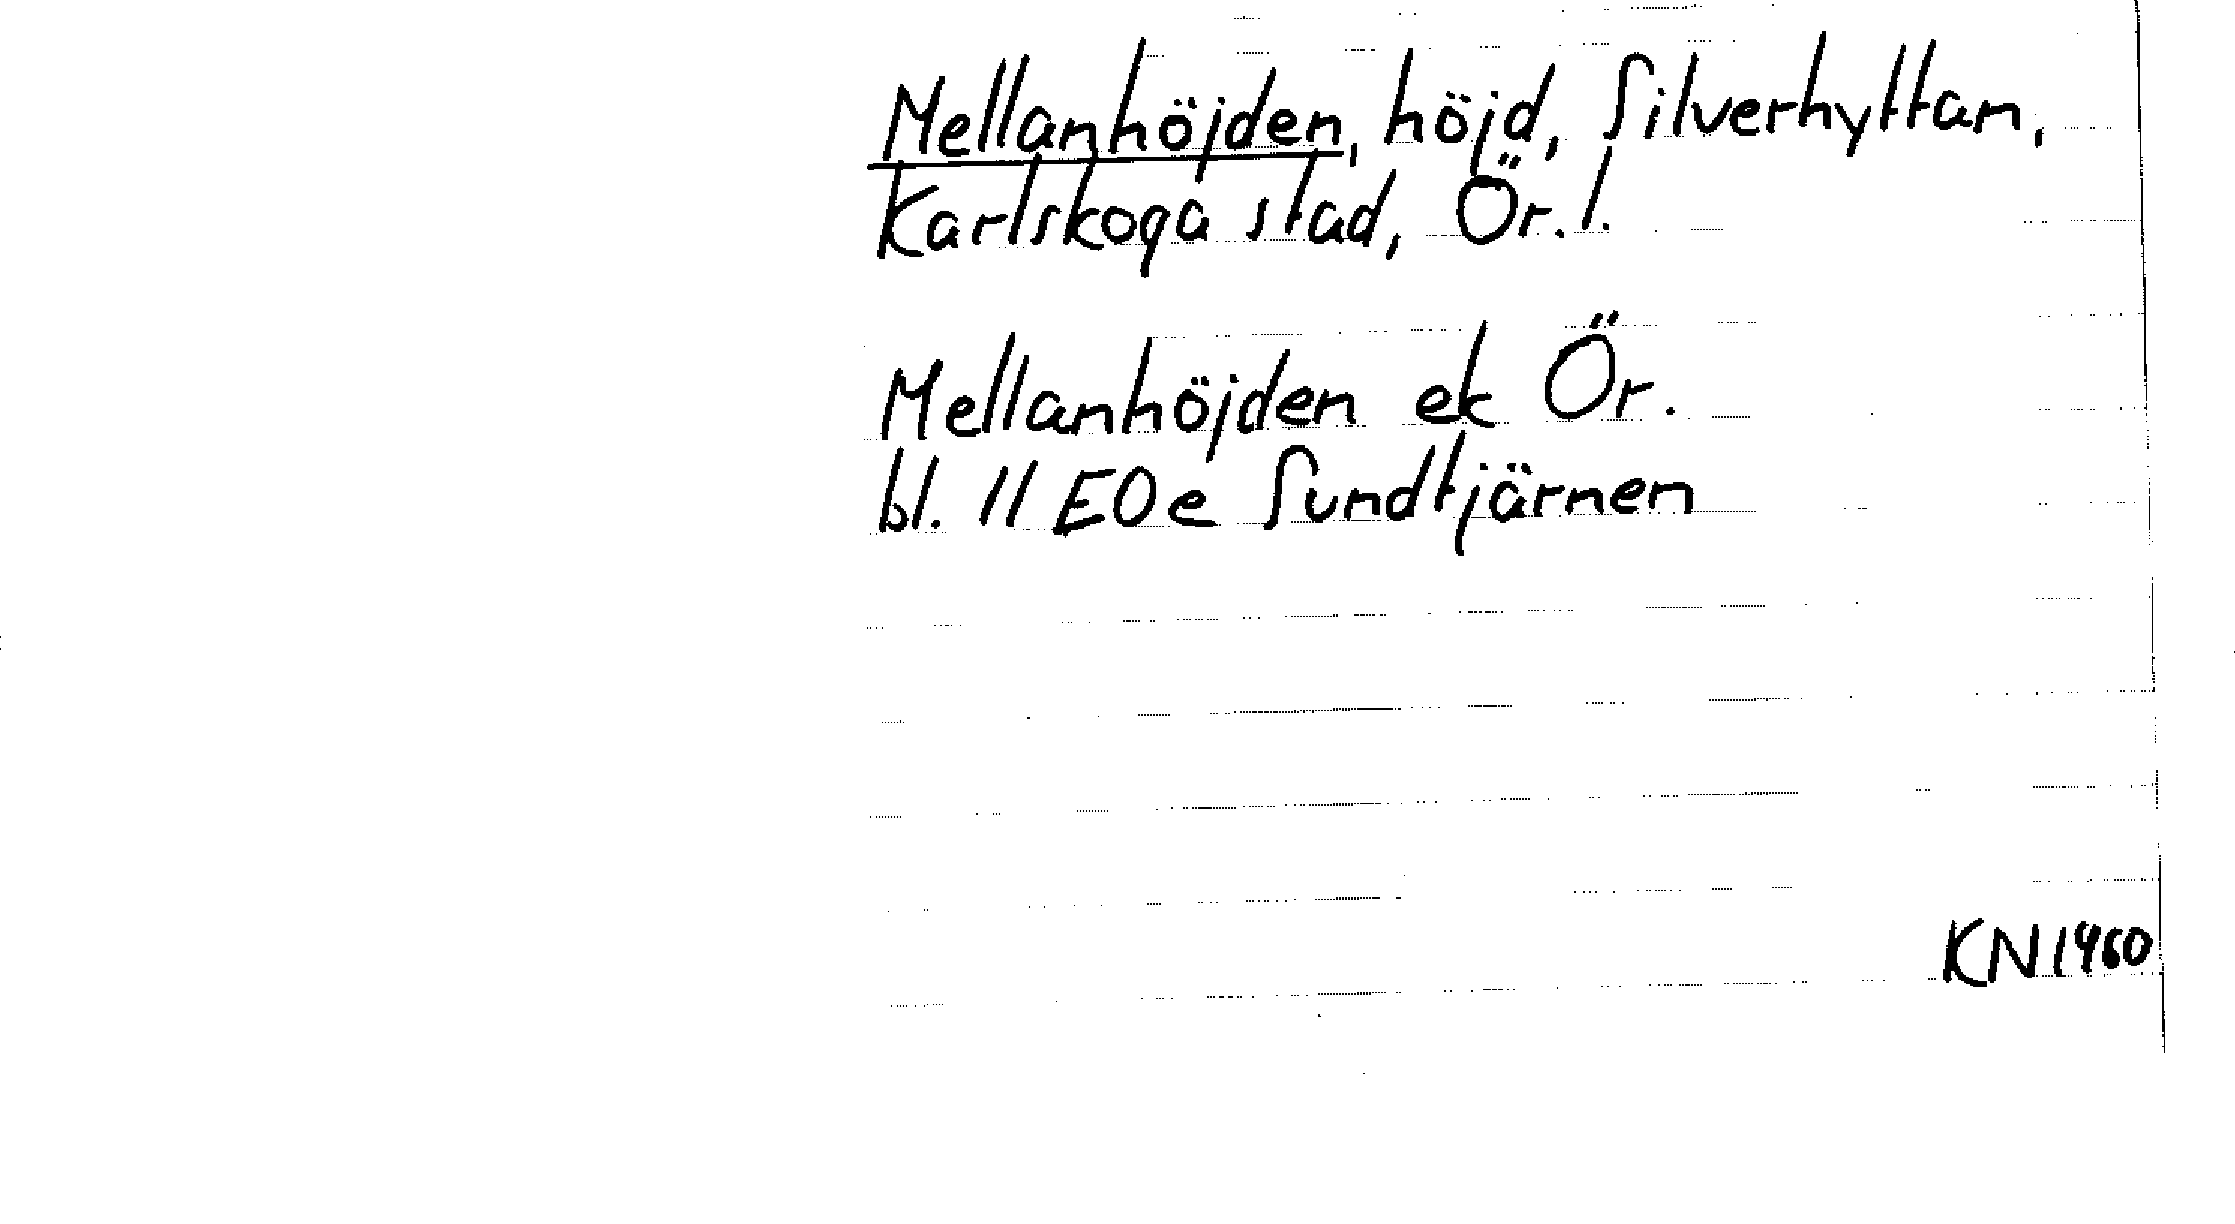 Mellanhöjden, höjd, Silverhyttan,
Karlskoga stad, Ör. l.
Mellanhöjden ek Ör.
bl. 11 EO e Sundtjärnen
KN 1960